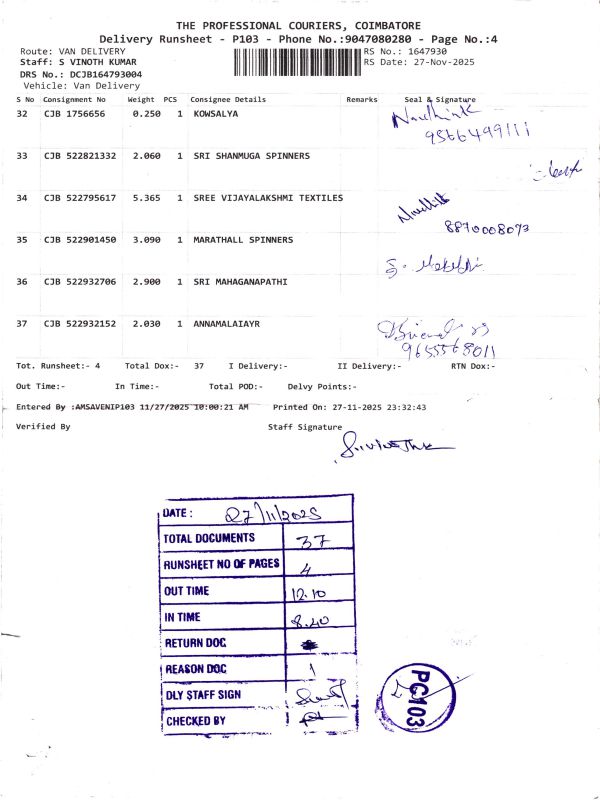 THE PROFESSIONAL COURIERS, COIMBATORE
Delivery Runsheet - P103 - Phone No.:9047080280 - Page No.:4
Route: VAN DELIVERY RS No.: 1647930
Staff: S VINOTH KUMAR RS Date: 27-Nov-2025
DRS No.: DCJB164793004
Vehicle: Van Delivery
S No Consignment No Weight PCS Consignee Details Remarks Seal & Signature
32 CJB 1756656 0.250 1 KOWSALYA
9566499111
33 CJB 522821332 2.060 1 SRI SHANMUGA SPINNERS
34 CJB 522795617 5.365 1 SREE VIJAYALAKSHMI TEXTILES
8870008073
35 CJB 522901450 3.090 1 MARATHALL SPINNERS
36 CJB 522932706 2.900 1 SRI MAHAGANAPATHI
37 CJB 522932152 2.030 1 ANNAMALAIAYR
9655568011
Tot. Runsheet:- 4 Total Dox:- 37 I Delivery:- II Delivery:- RTN Dox:-
Out Time:- In Time:- Total POD:- Delvy Points:-
Entered By :AMSAVENIP103 11/27/2025 10:00:21 AM Printed On: 27-11-2025 23:32:43
Verified By Staff Signature
DATE : 27/11/2025
TOTAL DOCUMENTS 37
RUNSHEET NO OF PAGES 4
OUT TIME 12.10
IN TIME 8.40
RETURN DOC
REASON DOC 1
DLY STAFF SIGN
CHECKED BY
PC103